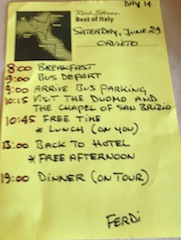 DAY 14
Rick Steves'
Best of Italy
SATURDAY, JUNE 29
ORVIETO
8:00 BREAKFAST
9:00 BUS DEPART
9:00 ARRIVE BUS PARKING
10:15 VISIT THE DUOMO AND
THE CHAPEL OF SAN BRIZIO
10:45 FREE TIME
* LUNCH (ON YOU)
13:00 BACK TO HOTEL
* FREE AFTERNOON
19:00 DINNER (ON TOUR)
FERDI